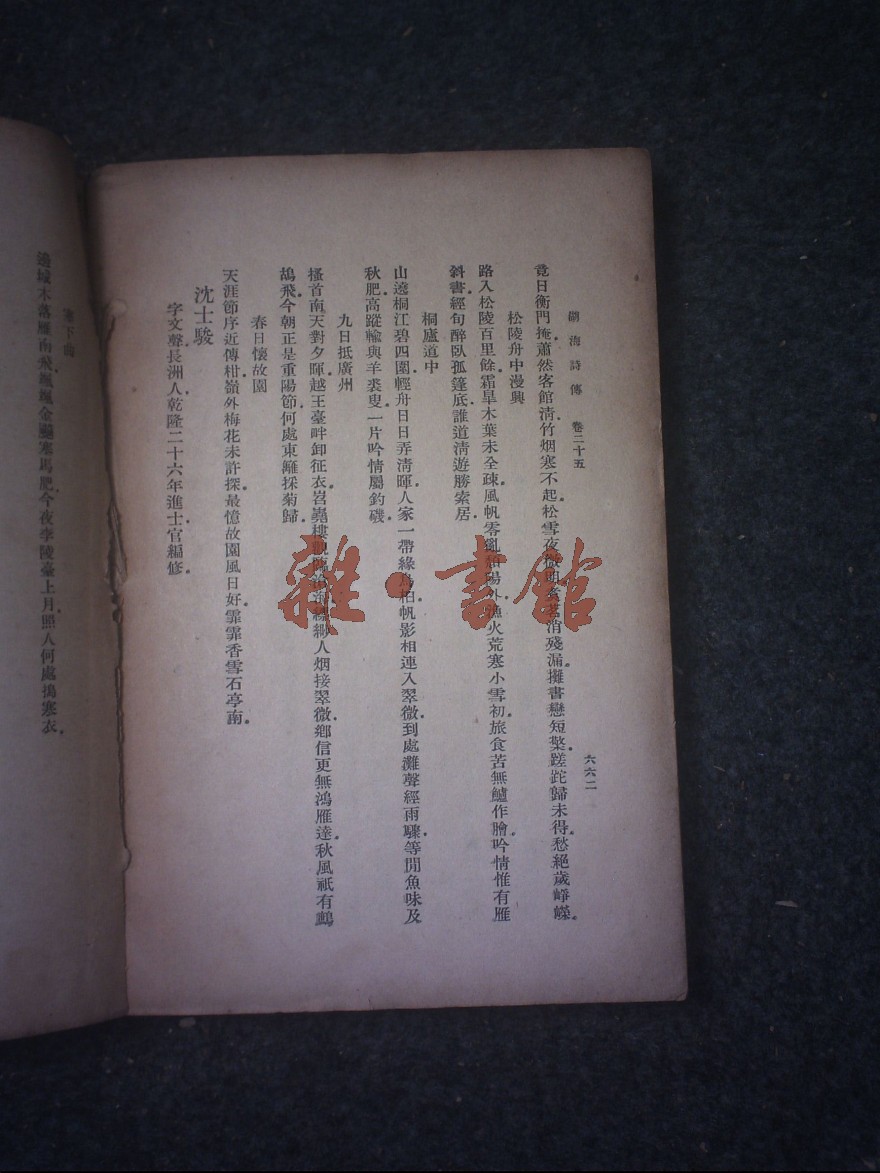 湖海詩傳　卷二十五
六六二
竟日衡門掩。蕭然客館清。竹烟寒不起。松雪夜微明。煮茗消殘漏。攤書戀短檠。蹉跎歸未得。愁絕歲崢嶸。
松陵舟中漫興
路入松陵百里餘。霜旱木葉未全疎。風帆零亂陽外。漁火荒寒小雪初。旅食苦無鱸作膾。吟情惟有雁
斜書。經旬醉臥孤篷底。誰道清遊勝索居。
桐廬道中
山遶桐江碧四圍。輕舟日日弄清暉。人家一帶緣烏桕。帆影相連入翠微。到處灘聲經雨驟。等閒魚味及
秋肥。高蹤輸與羊裘叟。一片吟情屬釣磯。
九日抵廣州
搔首南天對夕暉。越王臺畔卸征衣。岧嶤樓人烟接翠微。鄉信更無鴻雁達。秋風祇有鷓
鴣飛。今朝正是重陽節。何處東籬採菊歸。
春日懷故園
天涯節序近傳柑。嶺外梅花未許探。最憶故園風日好。霏霏香雪石亭南。
沈士駿
字文聲。長洲人。乾隆二十六年進士。官編修。
塞下曲
邊城木落雁南飛。颯颯金飈塞馬肥。今夜李陵臺上月。照人何處搗寒衣。
雜·書館